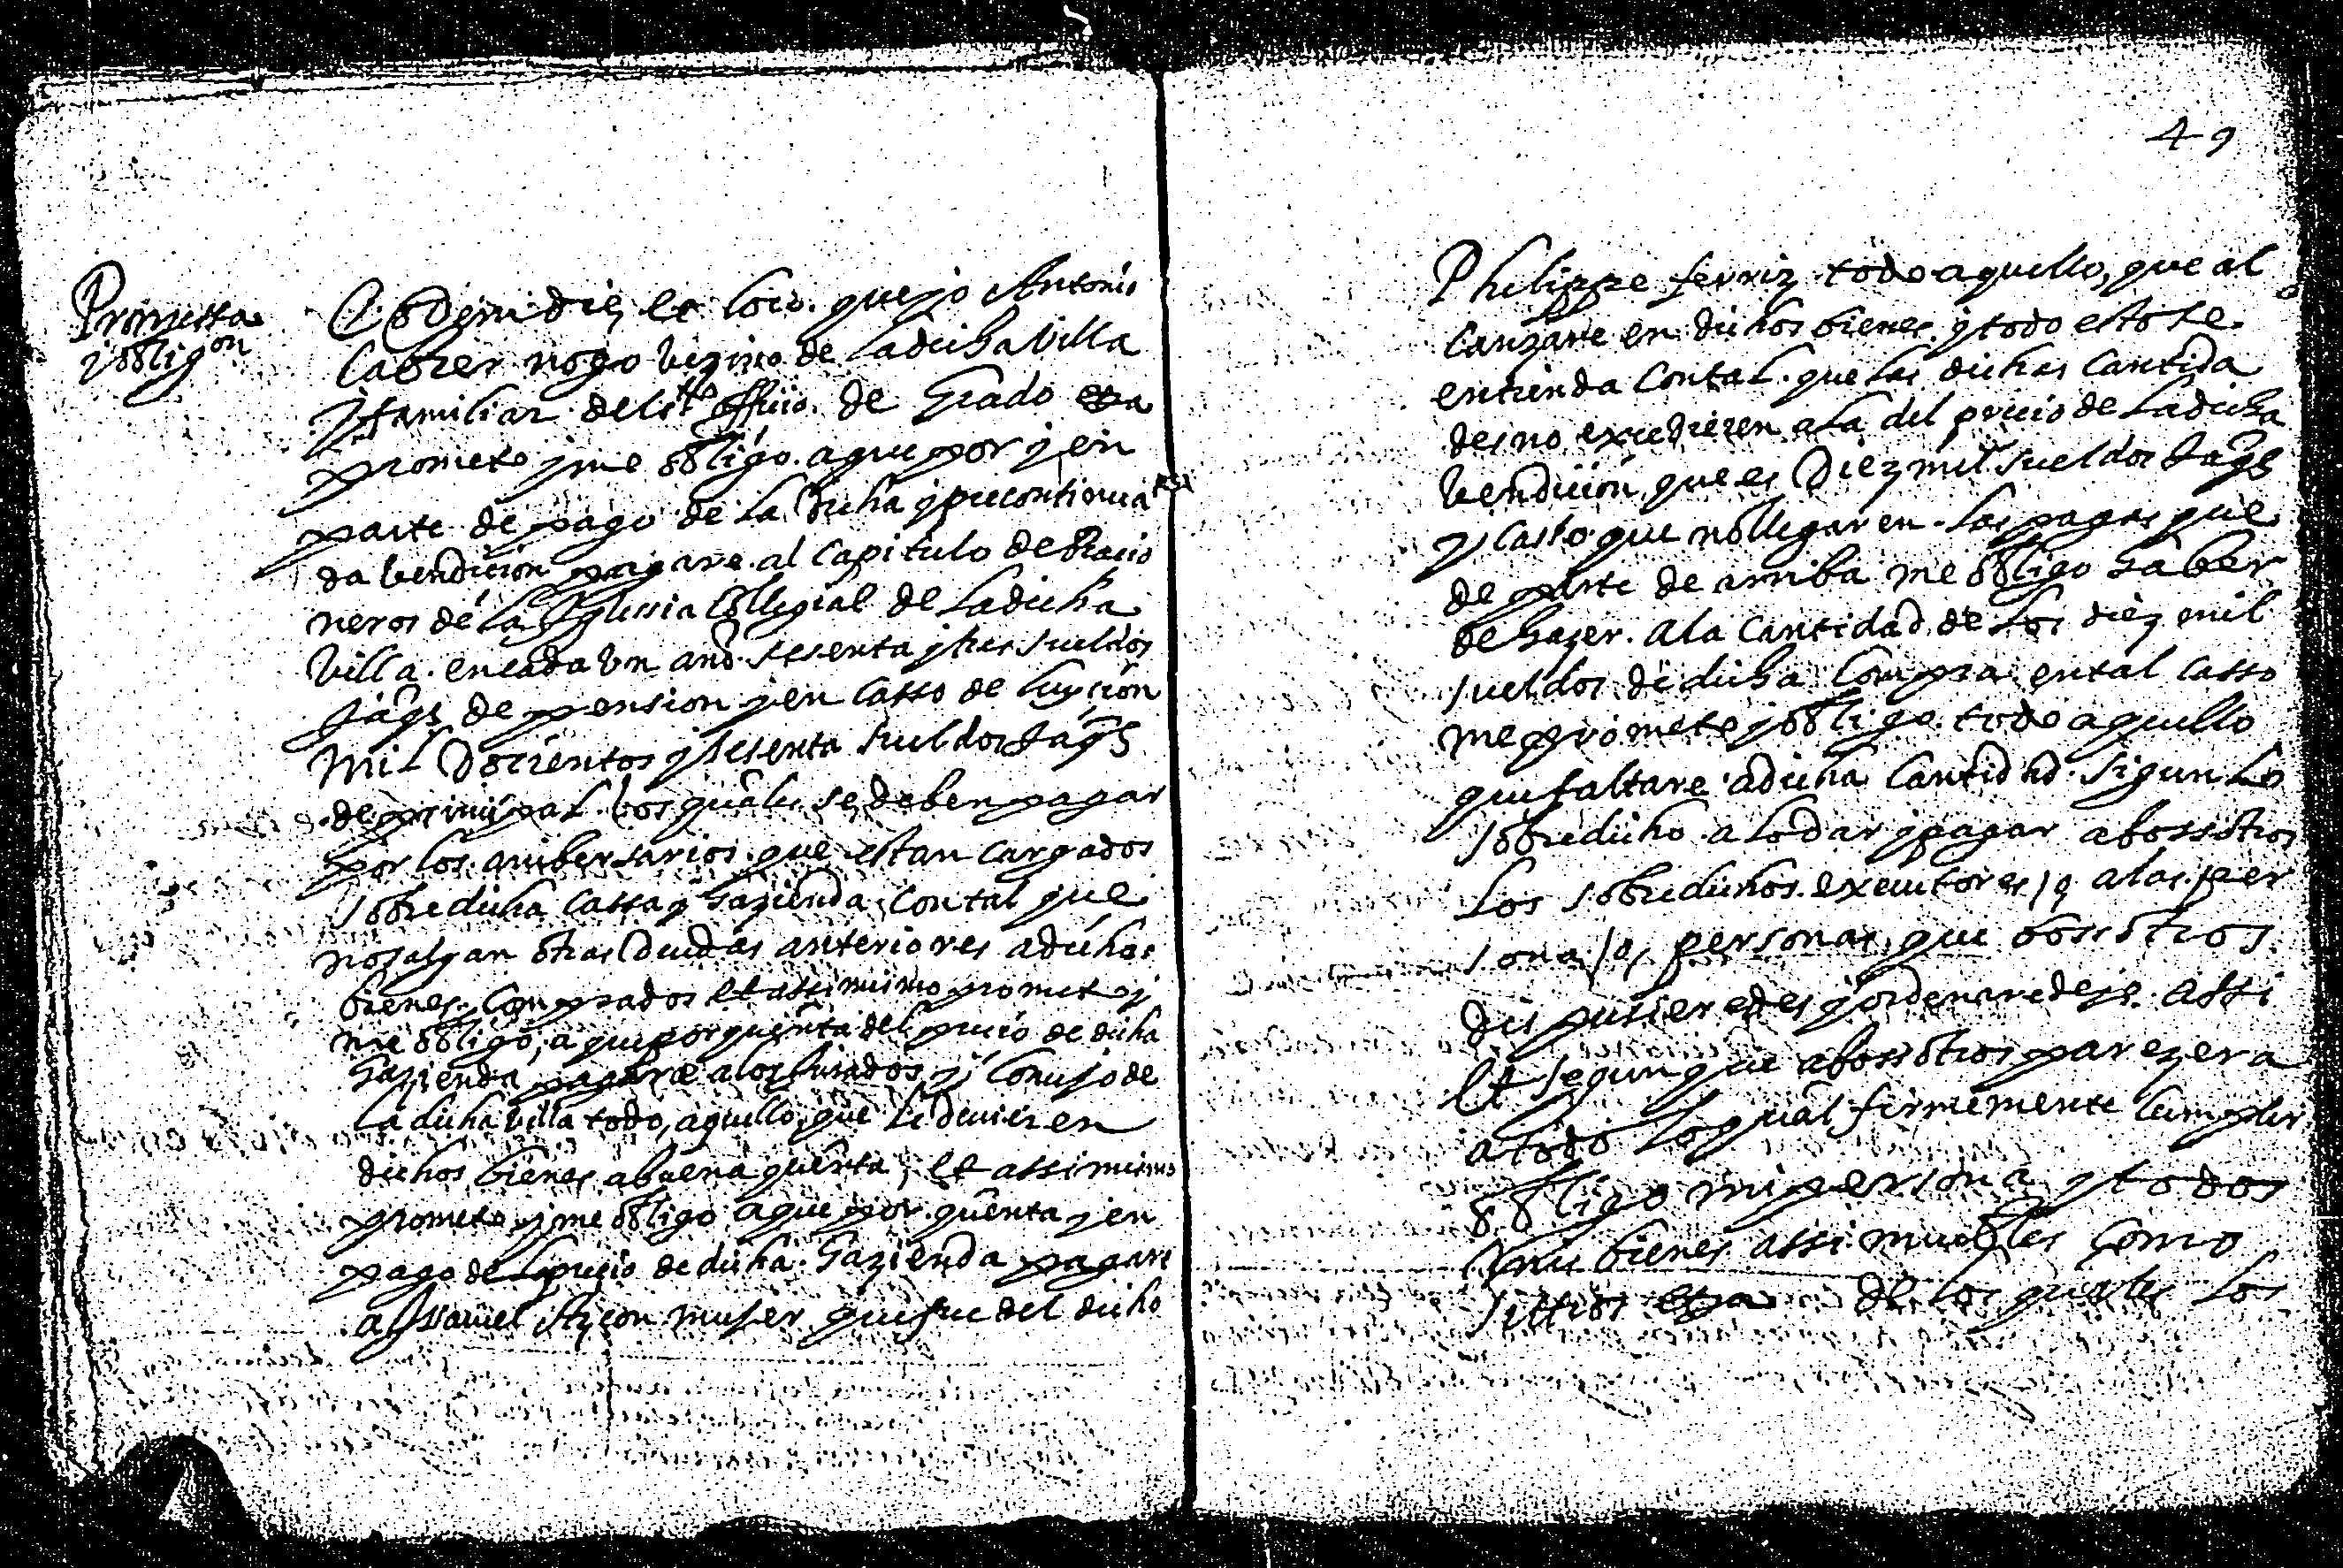 Promessa
y obligon
Eodem die, et loco. que yo Antonio
Cabrer nogo vezino de la dicha Villa
y familiar del sto officio. de Grado etca
prometo y me obligo. a que por y en
parte de pago de la dicha y precontinua
da vendicion pagare. al Capitulo de Racio
neros de la Iglessia Collegial de la dicha
Villa. en cada un año. sesenta y tres sueldos
Jaqs de pension y en casso de luycion
mil Docientos y sesenta sueldos Jaqs
de principal. los quales se deben pagar
por los. anibersarios. que estan cargados
sobre dicha cassa y hazienda, con tal que
no salgan otras deudas anteriores a dichos
bienes. comprados et assi mismo promet y
me obligo, a que por quenta del precio de dicha
hazienda pagare a los Jurados y Consejo de
la dicha villa todo, aquello, que se deviere en
dichos bienes, a buena quenta, et assi mismo
prometo y me obligo a que por. quenta y en
pago del precio de dicha. hazienda pagare
a Isavel Azcon muger que fue del dicho
49
Phelippe ferriz todo aquello, que al
canzare en dichos bienes. y todo esto se
entienda con tal. que las dichas cantida
des no excedieren a la del precio de la dicha
vendicion, que es Diez mil sueldos Jaqs
y casso. que no llegaren. las pagas que
de parte de arriba me obligo haber
de hazer. a la cantidad de los diez mil
sueldos de dicha compra en tal casso
me prometo y obligo. todo aquello
que faltare a dicha cantidad. sigun lo
sobredicho a lo dar y pagar a bossotros
los sobredichos. executores, o a la. per
sona, o, personas, que bossotros
dis pusieredes y ordenaredeys. assi
et segun que a bossotros parezera
a todo lo qual firmemente cumplir
obligo mi persona y todos
mis bienes assi muebles como
sittios etca de los quales los